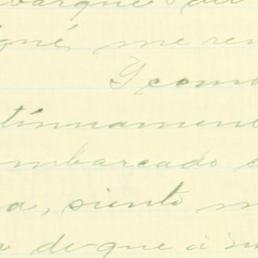 barqué
me
Y como
tinuamen
mbarcado
a, siento m
de que á su